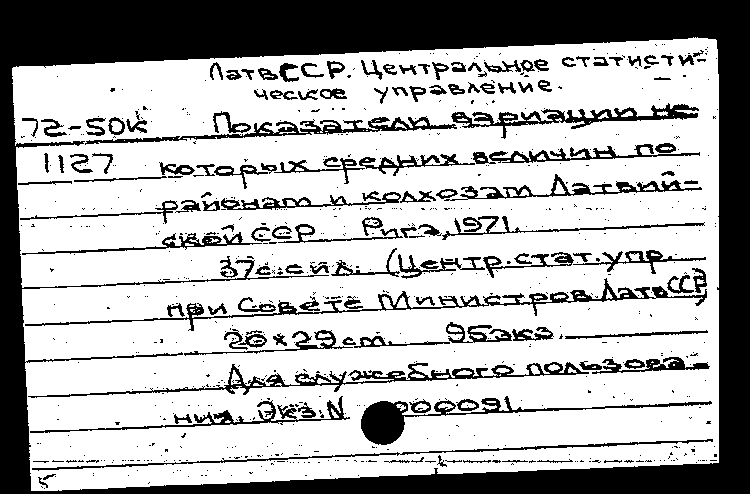 ЛатвССР. Центральное статисти-
ческое управление.
72-50к Показатели вариации не-
1127 которых средних величин по
районам и колхозам Латвий-
ской ССР Рига, 1971.
37с.с ил. (Центр.стат.упр.
при Совете Министров ЛатвССР)
20×29 cm. 95экз.
Для служебного пользова-
ния. Экз.N 000091.
5